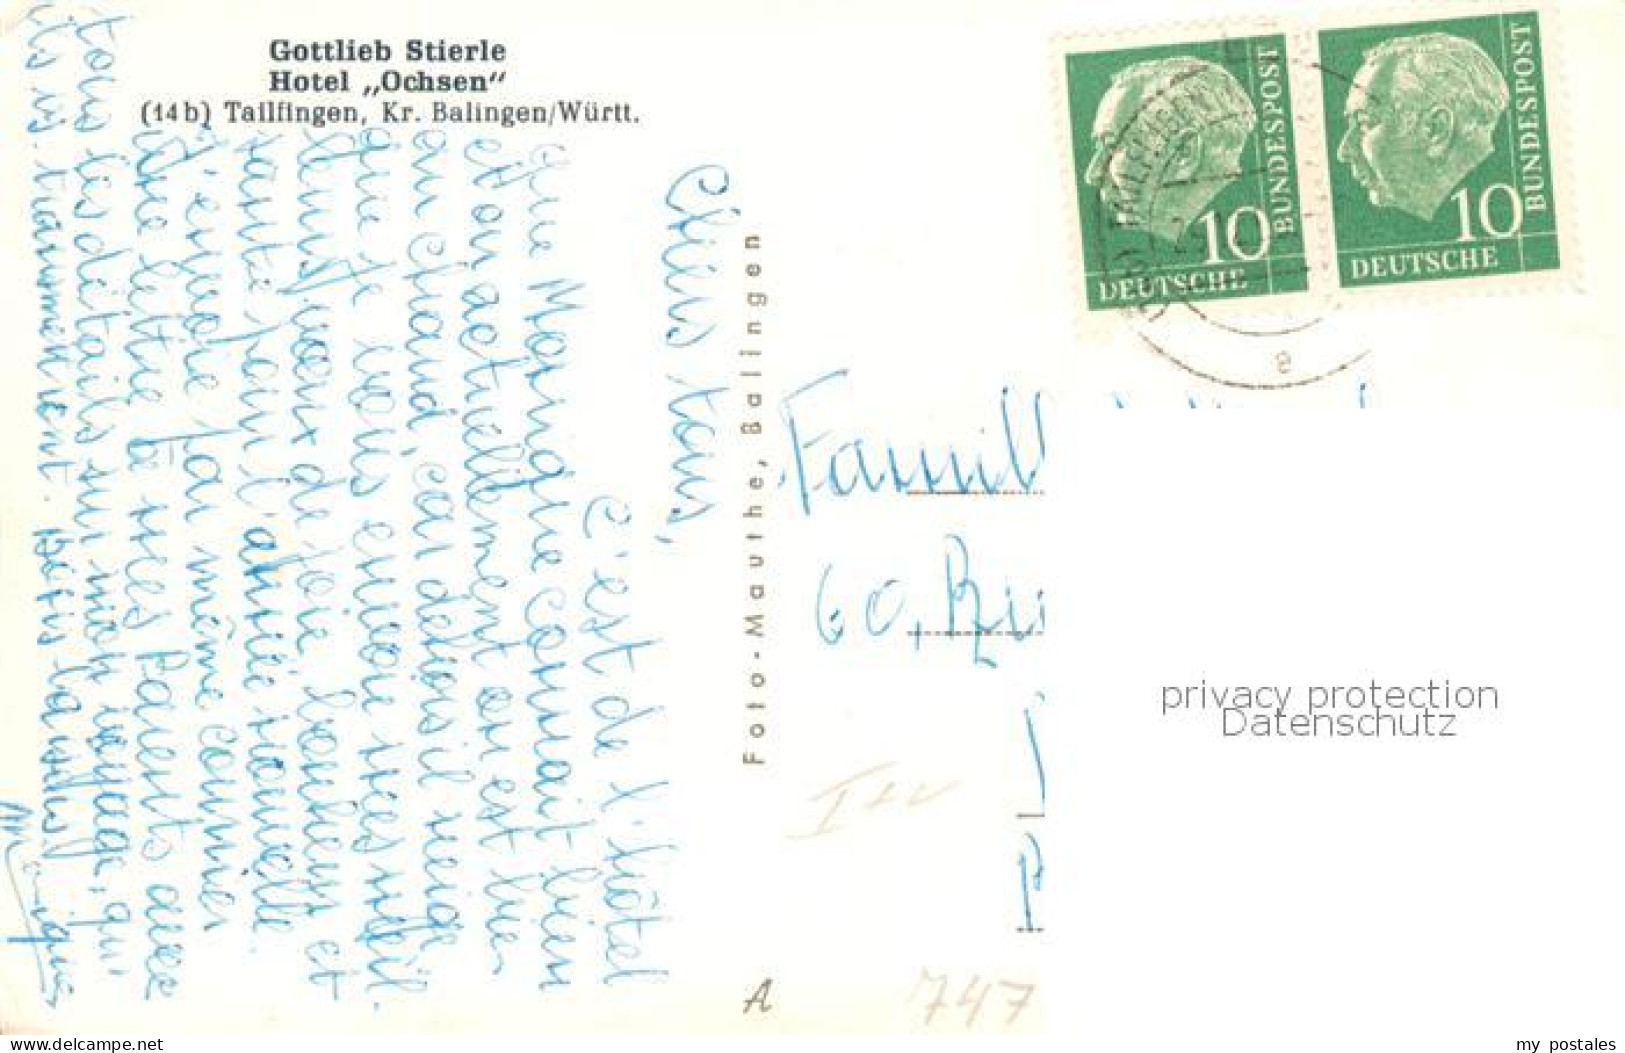 Gottlieb Stierle
Hotel „Ochsen“
(14b) Tailfingen, Kr. Balingen/Württ.
Chers tous,
C'est de l'hôtel
que Monique connait bien
et on actuellement on est bien
au chaud, car dehors il neige
que je vous envoie mes meil
leurs vœux de joie, bonheur et
santé pour l'année nouvelle.
J'envoie par même courrier
une lettre à mes Parents avec
tous les détails sur mon voyage, qui
transmettront. Bons baisers
Monique
Foto-Mauthe, Balingen
DEUTSCHE BUNDESPOST 10
DEUTSCHE BUNDESPOST 10
TAILFINGEN
a
Famill
60,
privacy protection
Datenschutz
A
747
www.delcampe.net
my_postales